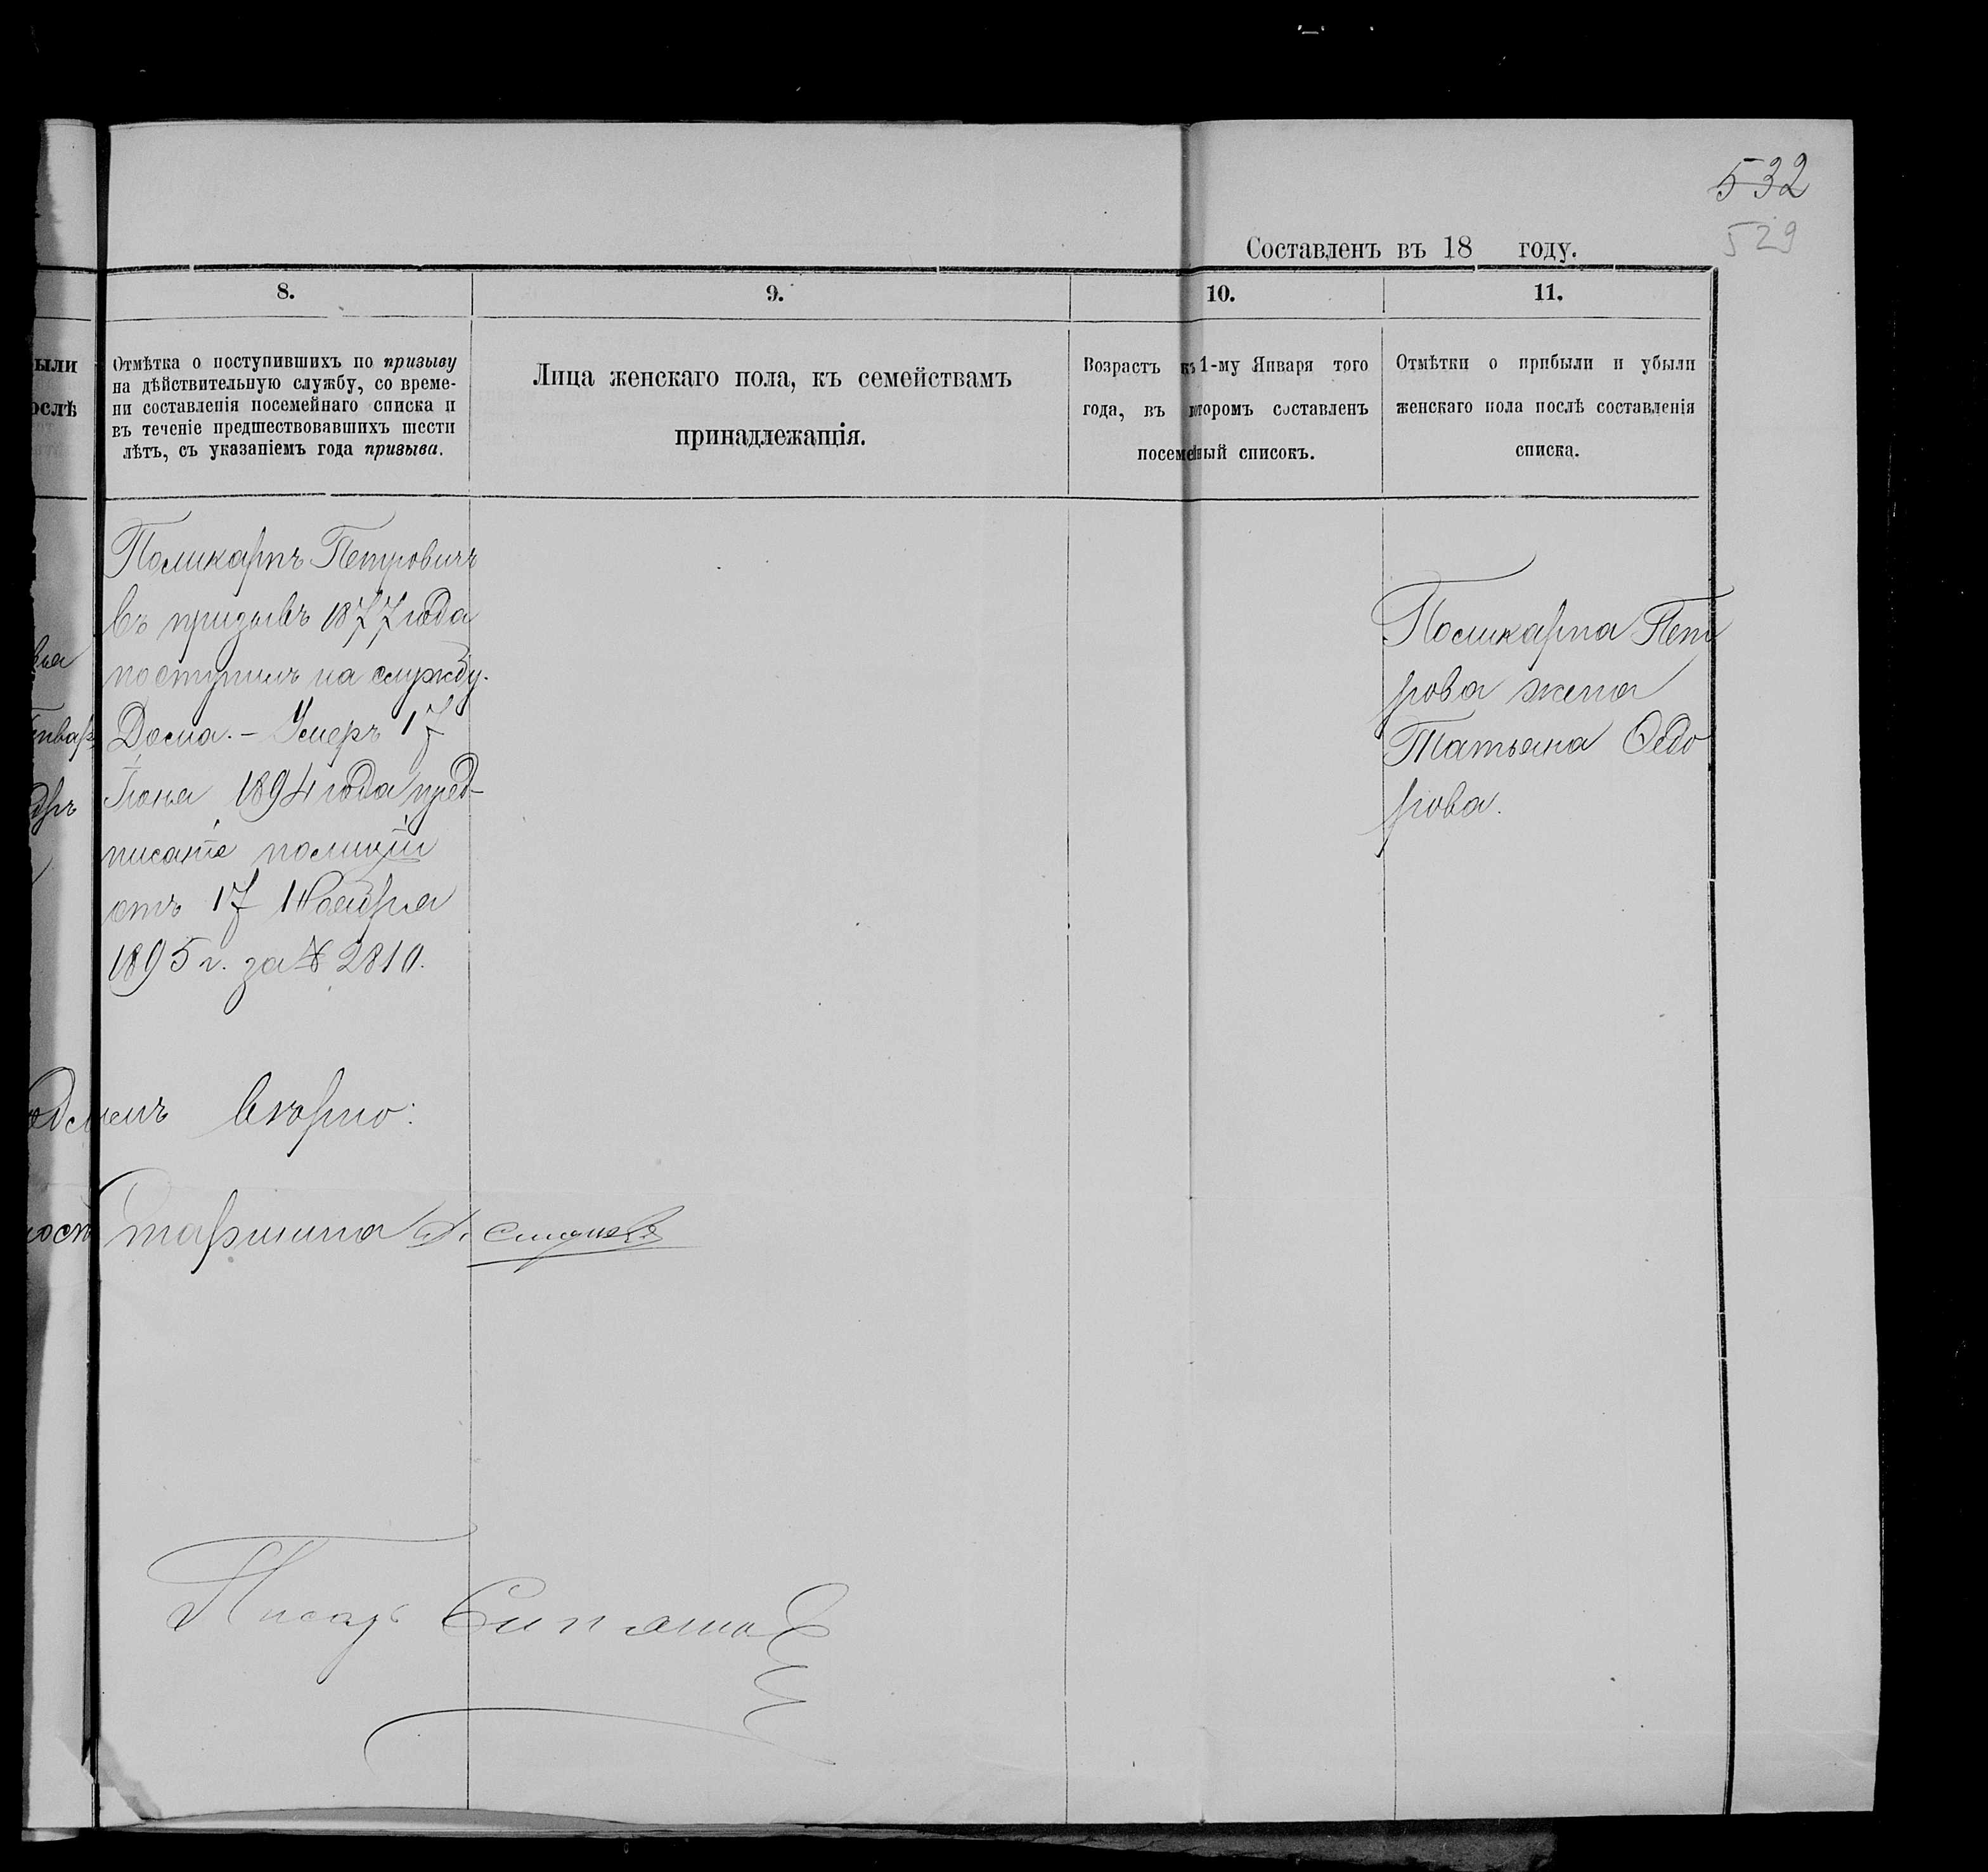 532
529
Составленъ въ 18 году.
8.
9.
10.
11.
ыли
ослѣ
Отмѣтка о поступившихъ по призыву
на дѣйствительную службу, со време-
ни составленія посемейнаго списка и
въ теченіе предшествовавшихъ шести
лѣтъ, съ указаніемъ года призыва.
Лица женскаго пола, къ семействамъ
принадлежащія.
Возрастъ къ 1-му Января того
года, въ которомъ составленъ
посемейный списокъ.
Отмѣтки о прибыли и убыли
женскаго пола послѣ составленія
списка.
Поликарпъ Петровичъ
въ призывъ 1877 года
поступилъ на службу.
Дома. – Умеръ 17
Іюня 1894 года пред-
писаніе полиціи
отъ 17 Ноября
1895 г. за № 2810.
Поликарпа Пет
рова жена
Татьяна Ѳедо
рова.
вѣрно:
таршина
Писарь